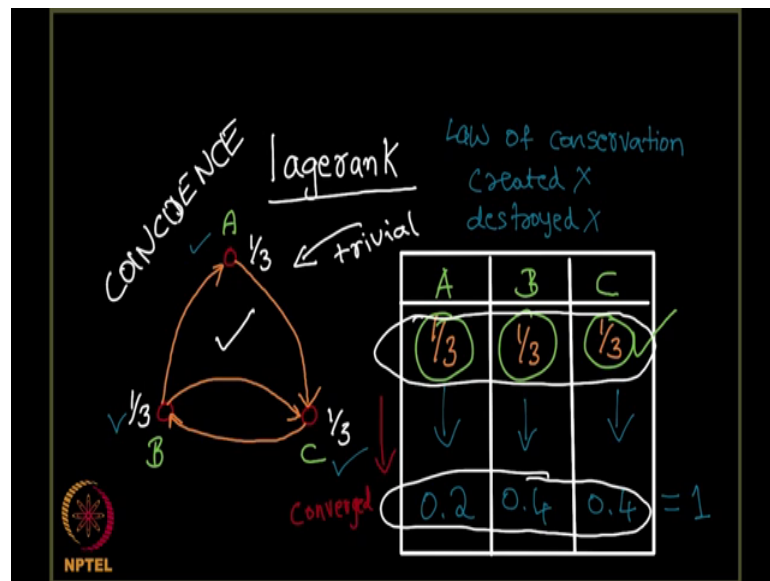 COINCIDENCE
lagerank
Law of conservation
created X
destroyed X
trivial
A
1/3
1/3
B
C
1/3
A B C
1/3 1/3 1/3
Converged
0.2 0.4 0.4 = 1
NPTEL